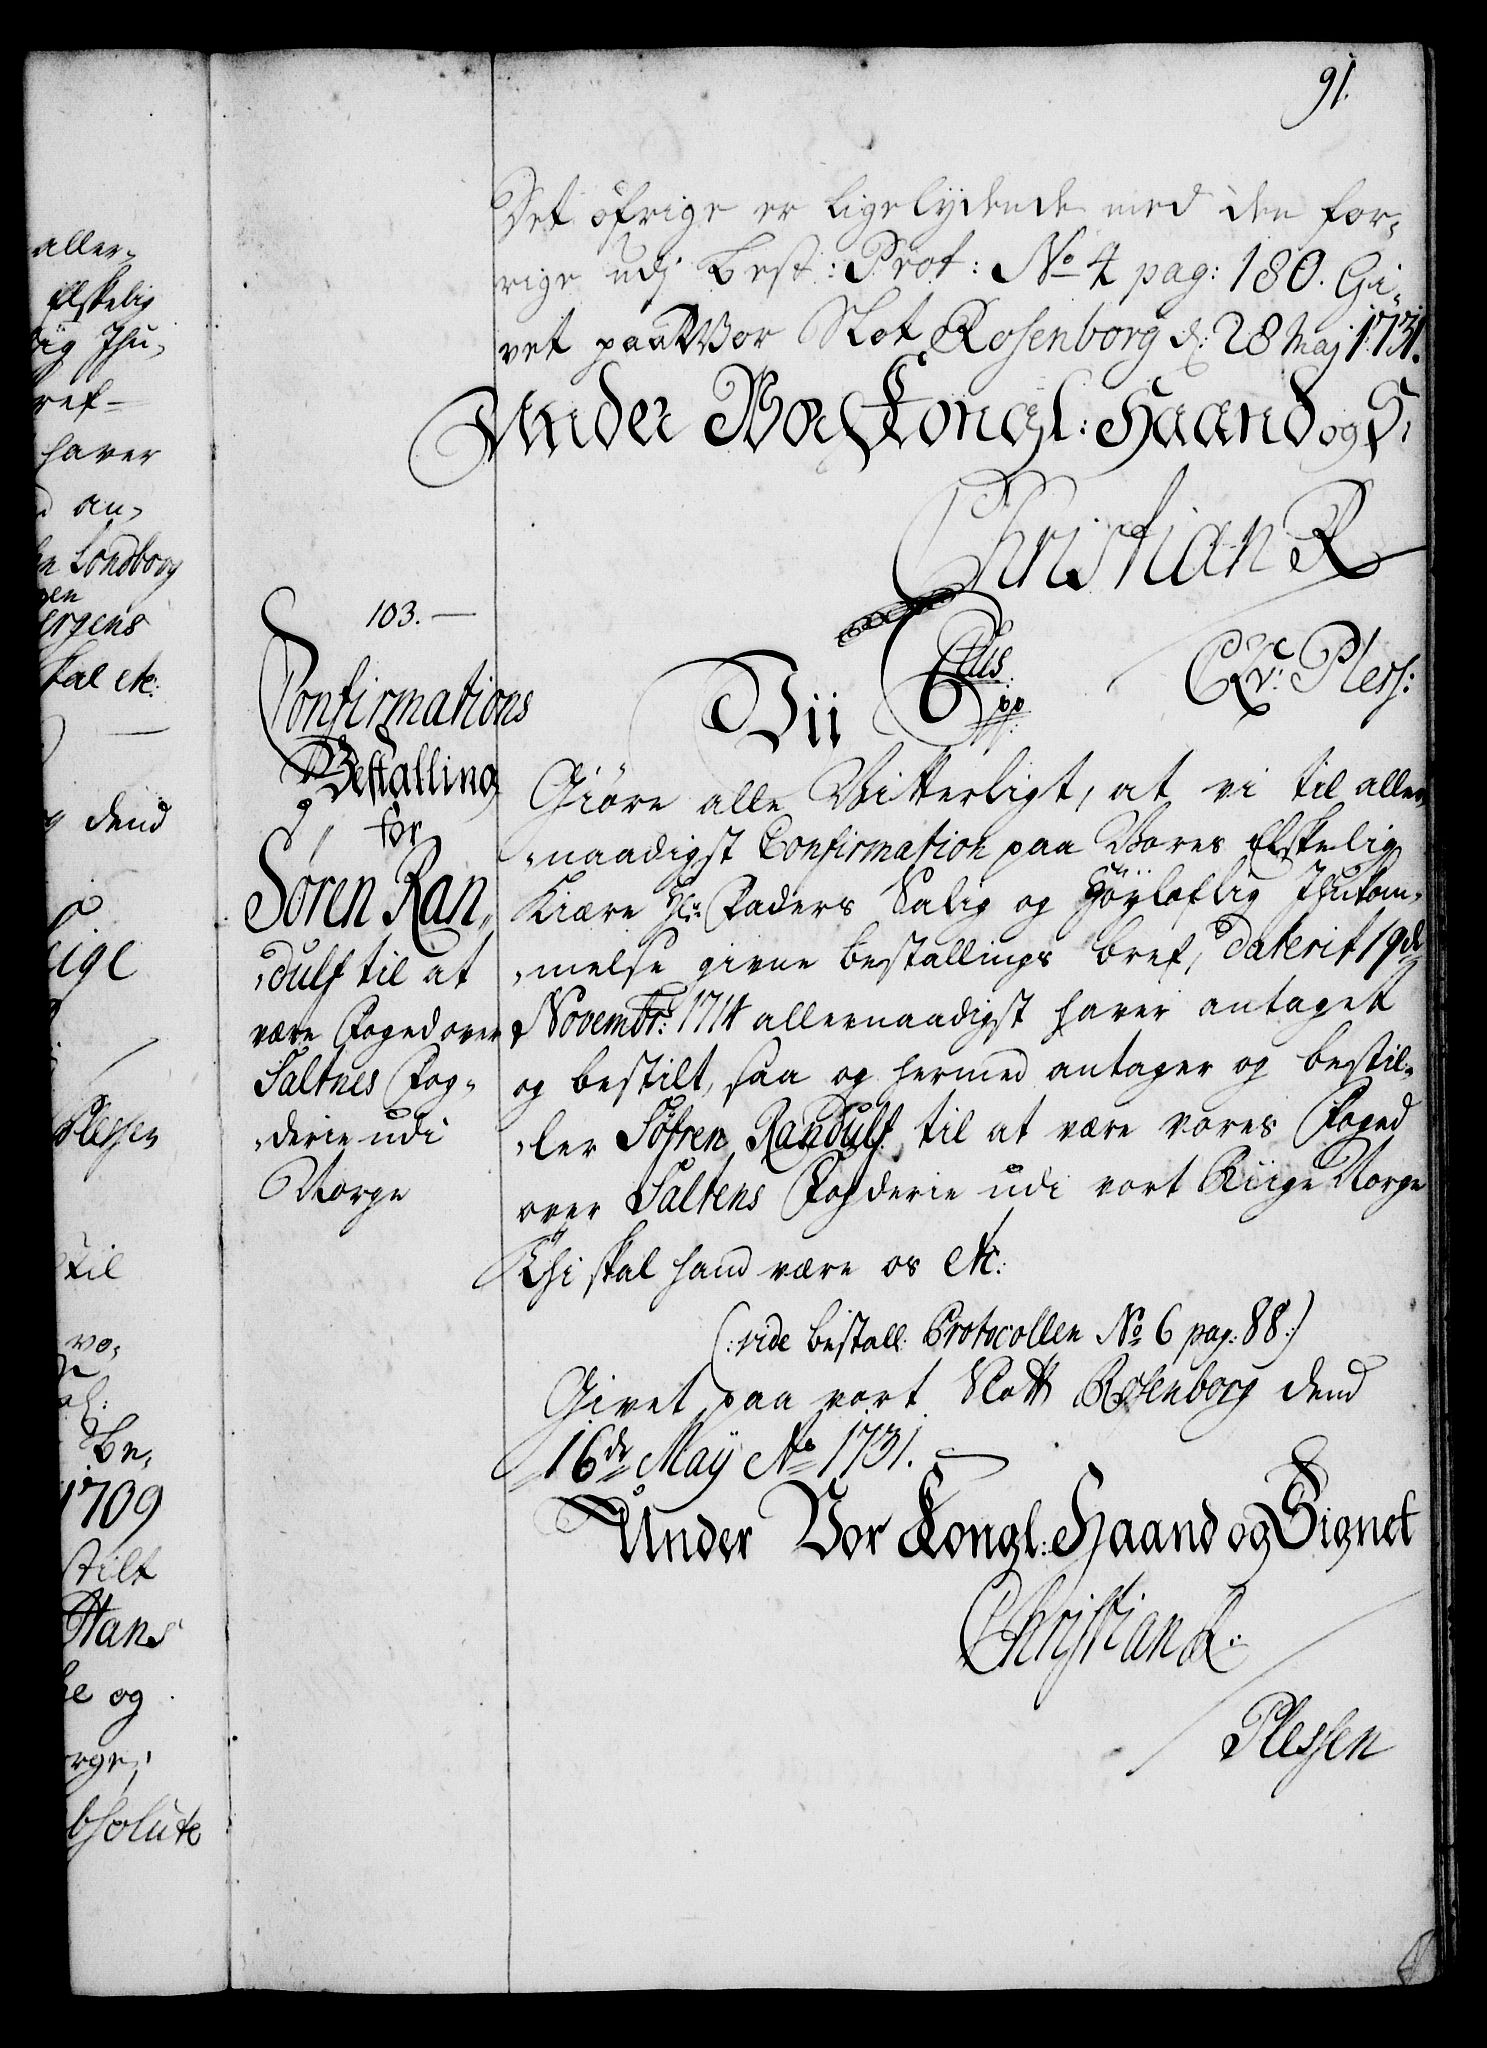 91.
Det öfrige er ligelydende med den for-
rige udj Best: Prot: No 4 pag: 180. Gi-
vet paa Vor Slot Rosenborg d: 28 Maj 1731.
Under Vor Kongl: Haand og S:
Christian R
C A v: Pless:
103.
Confirmations
Bestalling
for
Sören Ran-
dulf til at
være Foged over
Saltnes Fog-
derie udi
Norge
Vii C 6tus pp
Giöre alle Vitterligt, at vi til aller-
naadigst Confirmation paa Vores Elskelig
Kiære Hr: Faders Salig og Höyloflig Ihukom-
melse givne bestallings bref, Daterit 19de
Novembr: 1714 allernaadigst haver antaget
og bestilt, saa og hermed antager og bestil-
ler Söfren Randulf til at være vores Foged
over Saltens Fogderie udi vort Riige Norge
Thi skal hand være os etc:
(: vide bestall: Protocollen No 6 pag: 88 :)
Givet paa vort Slott Rosenborg dend
16de Maÿ Ao 1731.
Under Vor Kongl: Haand og Signet
Christian R:
Plessen
aller-
Elskelig
Ihu-
haver
an-
Londborg
ergens
etc:
dend
Plessen
til
Be-
1709
stilt
Hans
og
orge,
bsolute